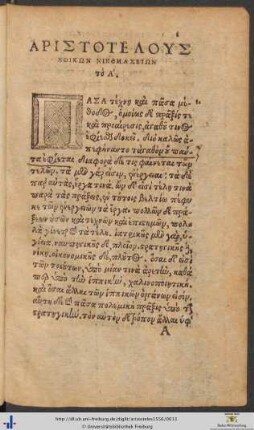 ΑΡΙΣΤΟΤΕΛΟΥΣ
ΗΘΙΚΩΝ ΝΙΚΟΜΑΧΕΙΩΝ
τὸ Α΄.
ΠΑΣΑ τέχνη καὶ πᾶσα μέ
θοδος, ὁμοίως δὲ πρᾶξίς τε
καὶ προαίρεσις, ἀγαθοῦ τινὸς
ἐφίεσθαι δοκεῖ. διὸ καλῶς ἀ
πεφήναντο τἀγαθὸν οὗ πάν
τα ἐφίεται. διαφορὰ δέ τις φαίνεται τῶν
τελῶν. τὰ μὲν γάρ εἰσιν, ἐνέργειαι: τὰ δὲ
παρ' αὐτὰς, ἔργα τινά. ὧν δ' εἰσὶ τέλη τινὰ
παρὰ τὰς πράξεις, ἐν τούτοις βελτίω πέφυ
κε τῶν ἐνεργειῶν τὰ ἔργα. πολλῶν δὲ πρά
ξεων οὐσῶν καὶ τεχνῶν καὶ ἐπιστημῶν, πολ
λὰ γίνεται τὰ τέλη. ἰατρικῆς μὲν γὰρ, ὑ
γίεια. ναυπηγικῆς δὲ, πλοῖον. στρατηγικῆς,
νίκη. οἰκονομικῆς δὲ, πλοῦτος. ὅσαι δ' εἰσὶ
τῶν τοιούτων, ὑπὸ μίαν τινὰ ἀρετὴν, καθά
περ ὑπὸ τὴν ἱππικὴν, χαλινοποιητικὴ,
καὶ ὅσαι ἄλλαι τῶν ἱππικῶν ὀργάνων εἰσὶν,
αὕτη δὲ καὶ πᾶσα πολεμικὴ πρᾶξις ὑπὸ τὴν
στρατηγικήν. τὸν αὐτὸν δὲ τρόπον ἄλλαι ὑφ'
A
http://dl.ub.uni-freiburg.de/diglit/aristoteles1556/0013
© Universitätsbibliothek Freiburg